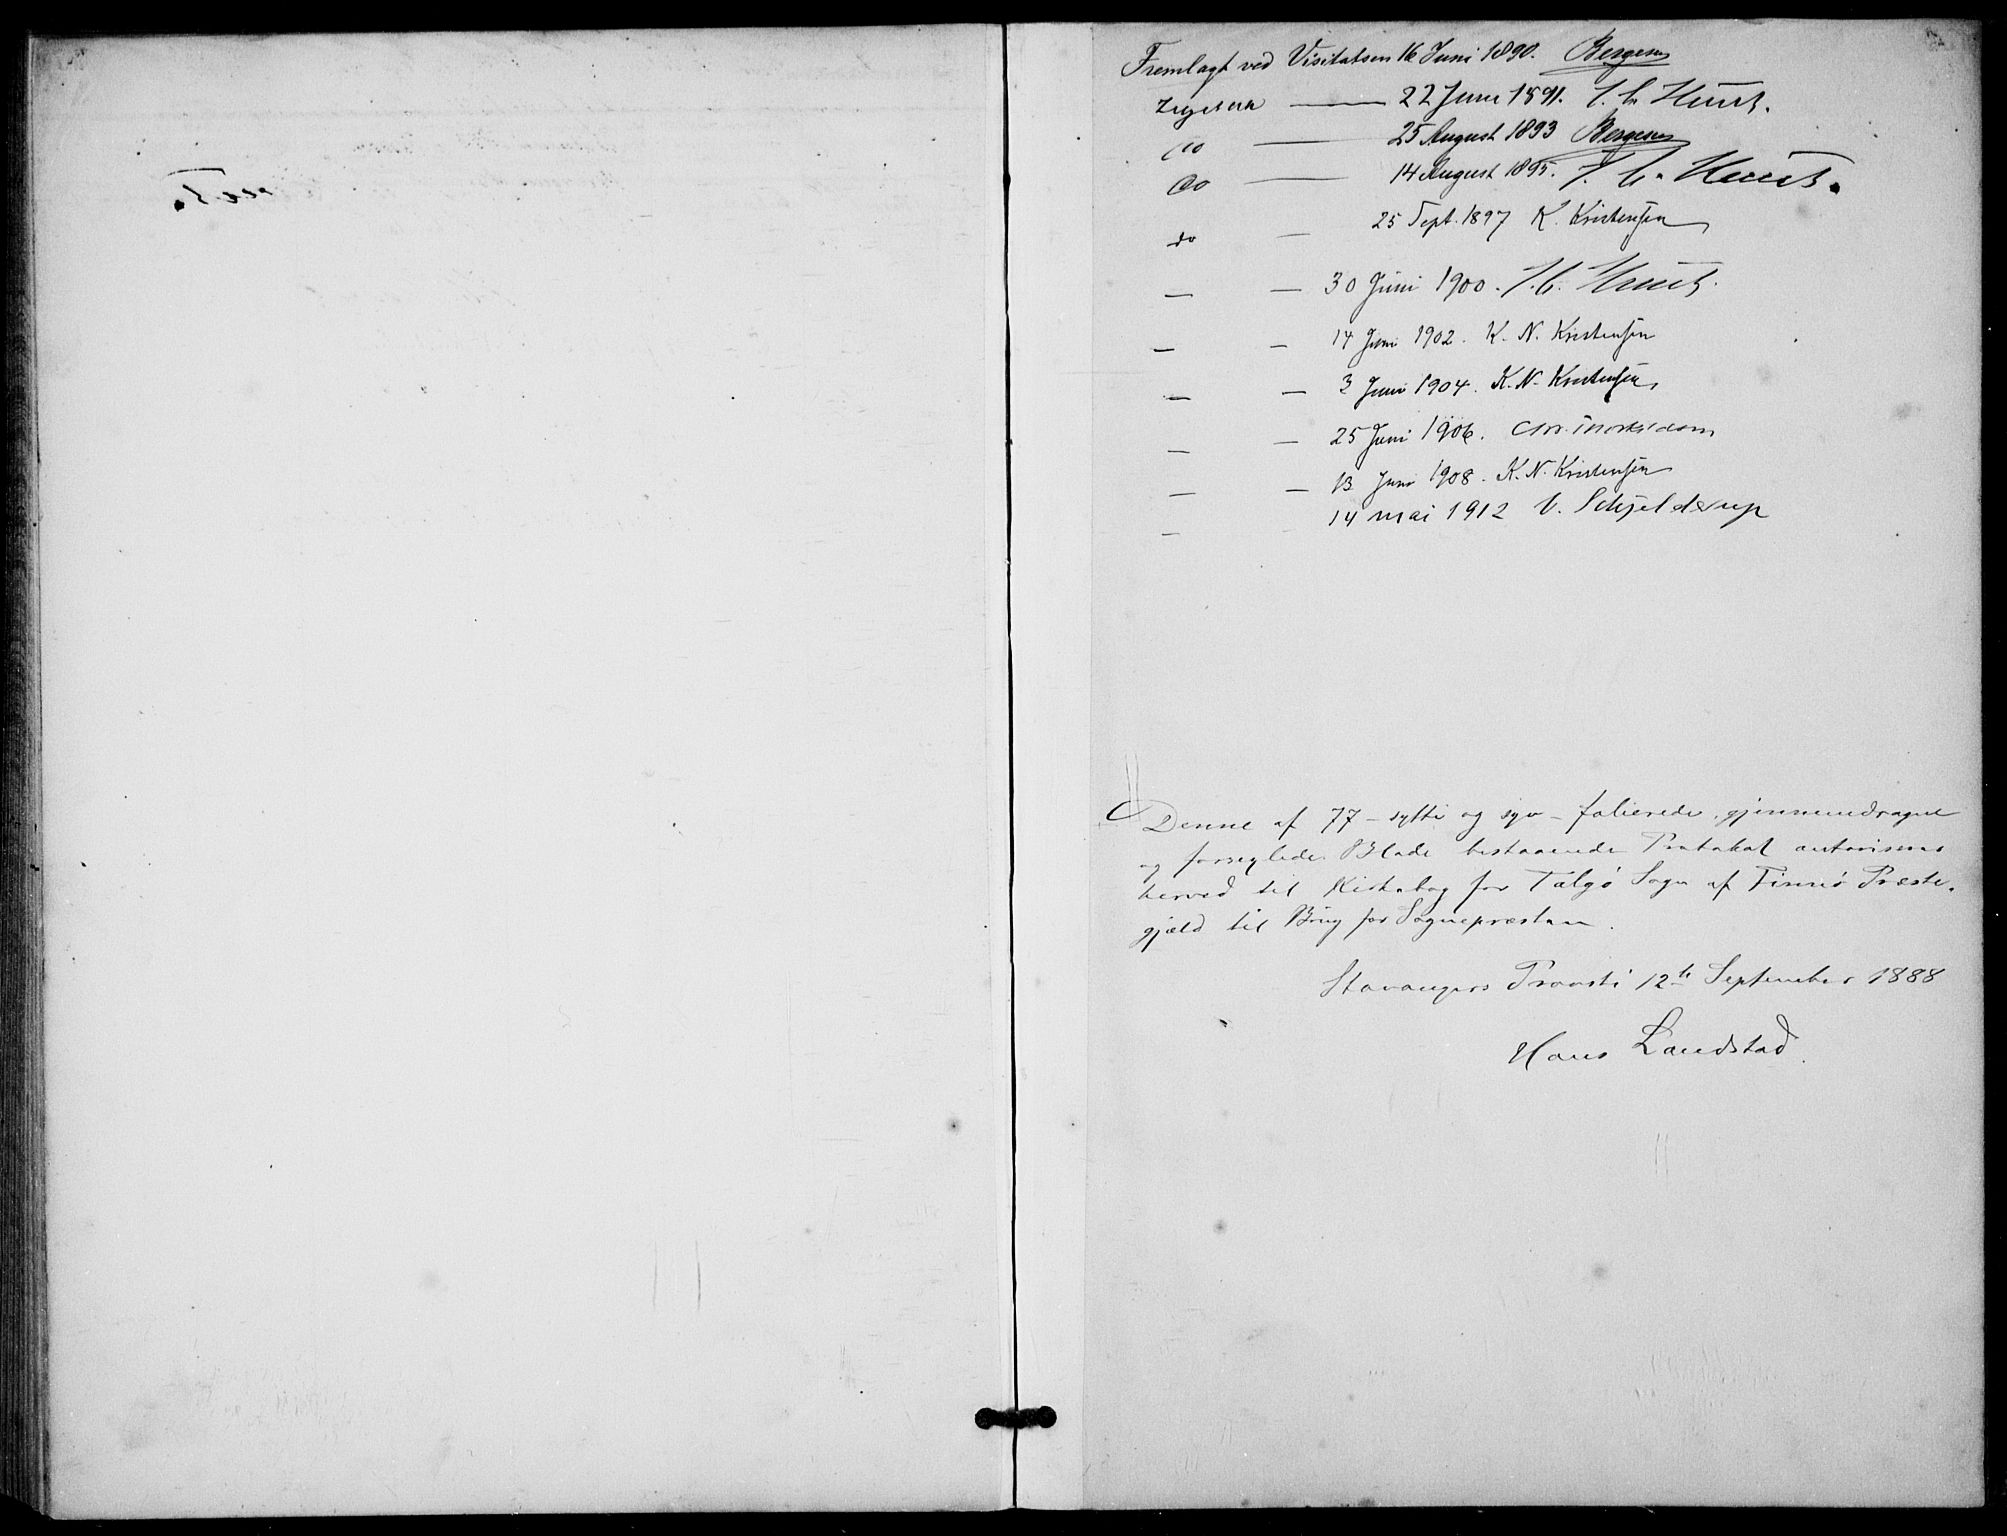 Fremlagt ved Visitatsen 16 Juni 1890. Bergesen
Ligeledes — 22 Juni 1891. J. C. Huus.
do — 25 August 1893 Bergesen
do — 14 August 1895. J. C. Huus.
do — 25 Sept. 1897 K. Kristensen
— — 30 Juni 1900. J. C. Huus.
— — 14 Juni 1902. K. N. Kristensen
— — 3 Juni 1904. K. N. Kristensen
— — 25 Juni 1906. Chr.
— — 13 Juni 1908. K. N. Kristensen
— 14 mai 1912 V. Schjelderup
Denne af 77 – sytti og syv – folierede, gjennemdragne
og forseglede Blade bestaaende Protokol autoriseres
herved til Kirkebog for Talgø Sogn af Finnø Præste-
gjæld til Brug for Sognepræsten.
Stavangers Provsti 12te September 1888
Hans Landstad.